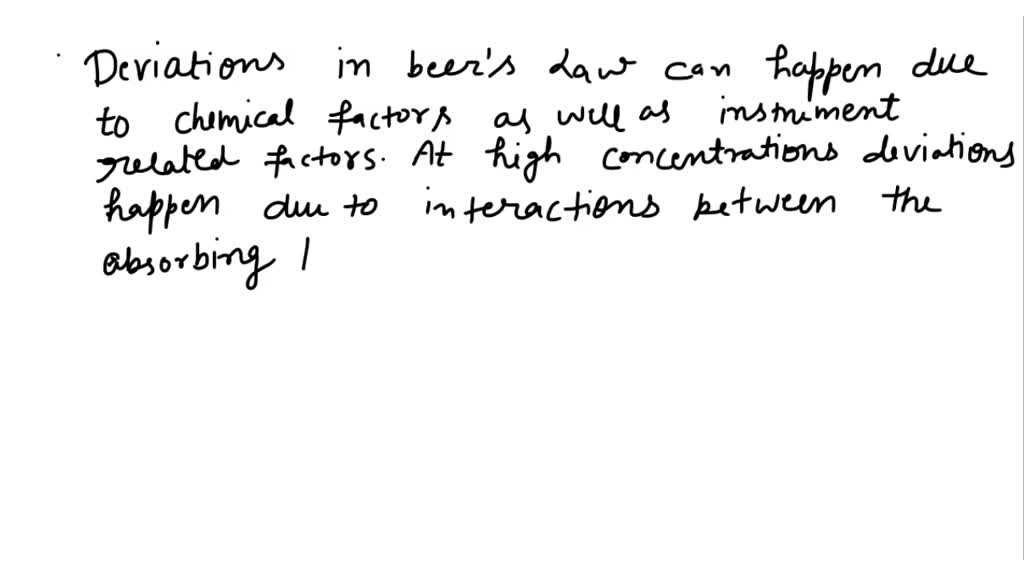 Deviations in beer's Law can happen due
to chemical factors as well as instrument
related factors. At high concentrations deviations
happen due to interactions between the
absorbing